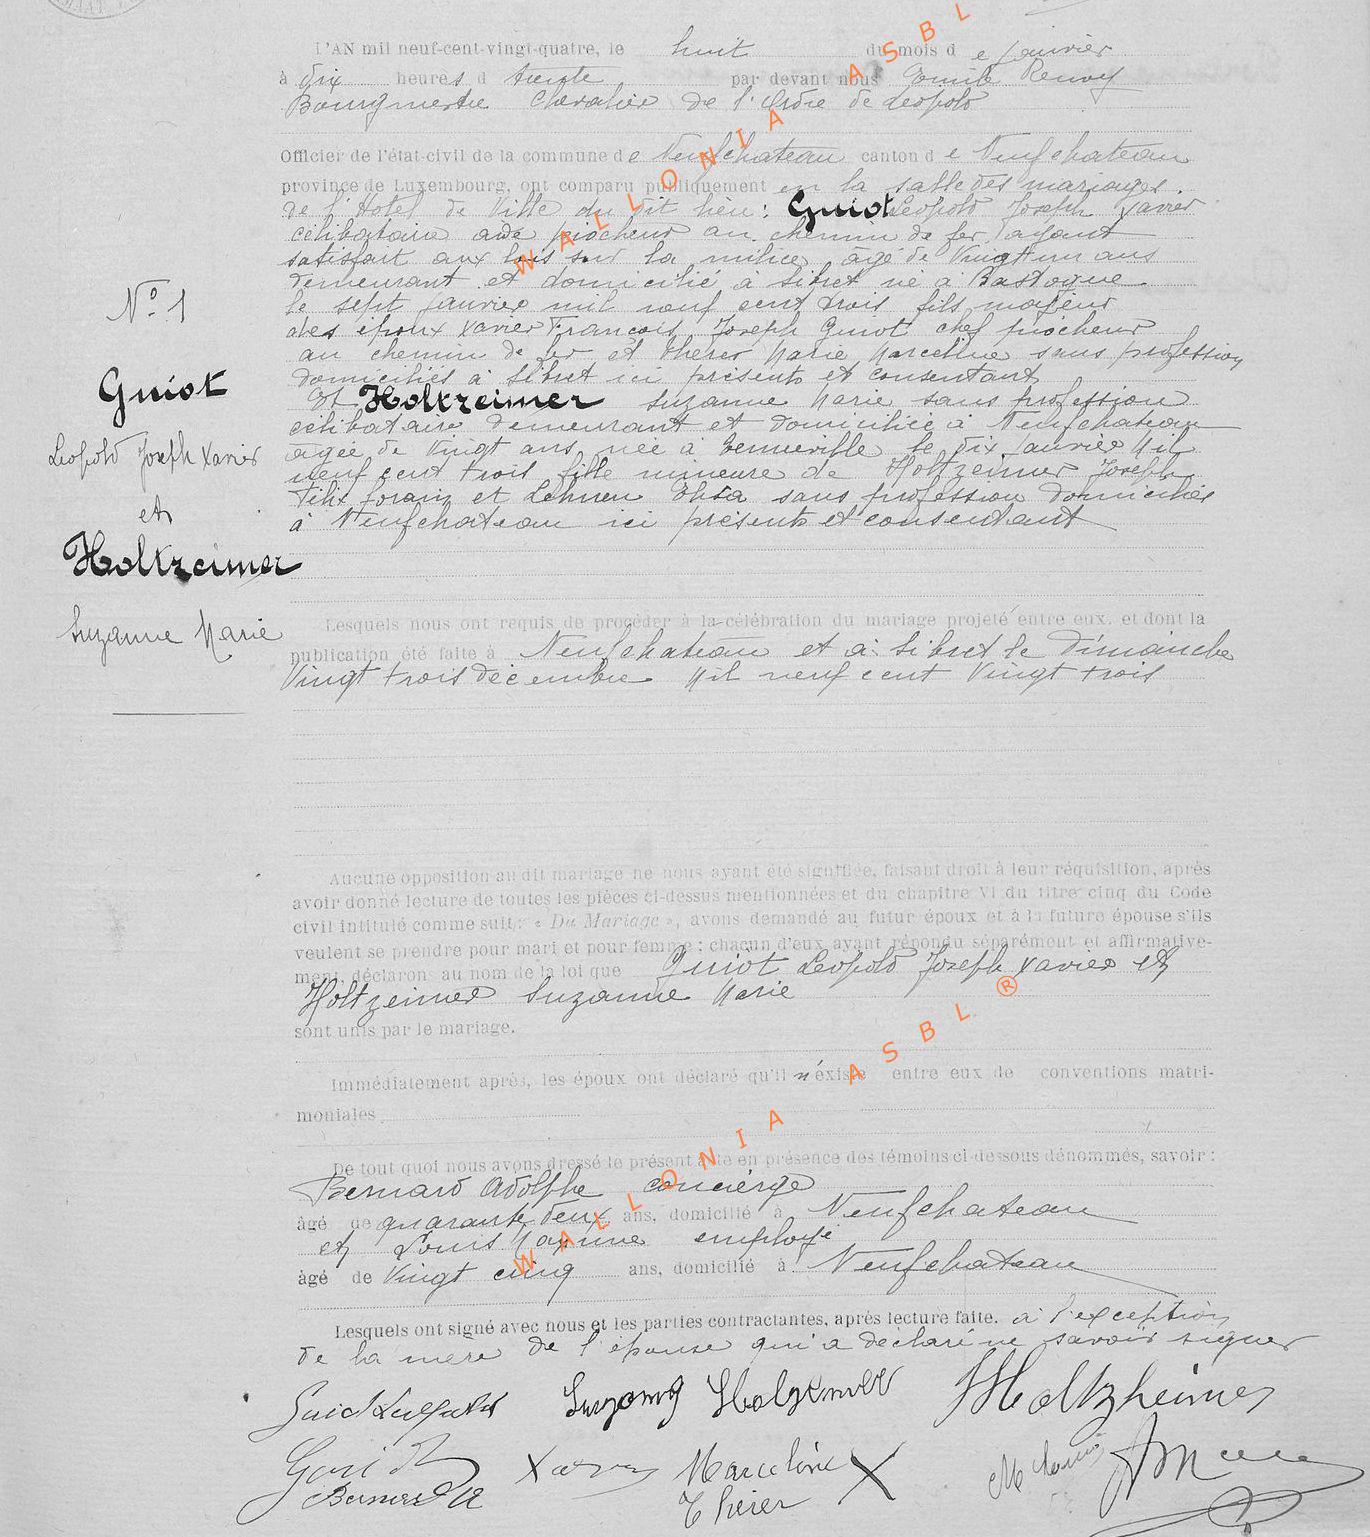 L'AN mil neuf-cent-vingt-quatre, le huit du mois de janvier
à dix heures d trente par devant nous Renoy
Bourgmestre Chevalier de l'Ordre de Leopold
Officier de l'état-civil de la commune de Neufchateau canton de Neufchateau
province de Luxembourg, ont comparu publiquement en la salle des mariages.
de l'Hotel de Ville du dit lieu: Guiot Leopold Joseph Xavier
célibataire aide piocheur au chemin de fer, ayant
satisfait aux lois sur la milice, âgé de vingt un ans
demeurant et domicilié à Sibret né à Bastogne
le sept janvier mil neuf cent trois fils majeur
des epoux Xavier François Joseph Guiot chef piocheur
au chemin de fer et Therer Marie Marceline sans profession
domiciliés à Sibret ici présents et consentant
Et Holtzeimer Suzanne Marie sans profession
célibataire demeurant et domiciliée à Neufchateau
agée de vingt ans née à Tenneville le dix janvier Mil
neuf cent trois fille mineure de Holtzeimer Joseph
Félix forain et Lehnen sans profession domiciliés
à Neufchateau ici présents et consentant
N° 1
Guiot
Leopold Joseph Xavier
et
Holtzeimer
Suzanne Marie
Lesquels nous ont requis de procéder à la célébration du mariage projeté entre eux. et dont la
publication été faite à Neufchateau et à Sibret le Dimanche
Vingt trois décembre Mil neuf cent Vingt trois
Aucune opposition au dit mariage ne nous ayant été signifiée, faisant droit à leur réquisition, après
avoir donné lecture de toutes les pièces ci-dessus mentionnées et du chapitre VI du titre cinq du Code
civil intitulé comme suit: « Du Mariage », avons demandé au futur époux et à la future épouse s'ils
veulent se prendre pour mari et pour femme; chacun d'eux ayant répondu séparément et affirmative-
ment, déclarons au nom de la loi que Guiot Leopold Joseph Xavier et
Holtzeimer Suzanne Marie
sont unis par le mariage.
Immédiatement après, les époux ont déclaré qu'il n'éxiste entre eux de conventions matri-
moniales
De tout quoi nous avons dressé le présent acte en présence des témoins ci-dessous dénommés, savoir:
Bernard Adolphe concierge
âgé de quarante deux ans, domicilié à Neufchateau
et Louis Maxime employé
âgé de Vingt cinq ans, domicilié à Neufchateau
Lesquels ont signé avec nous et les parties contractantes, après lecture faite. à l'exception
de la mère de l'épouse qui a déclaré ne savoir signer
Guiot Leopold Suzanne Holzemer JHoltzheimer
Guiot Xavier Marceline
Bernard A Therer M Louis
WALLONIA ASBL
WALLONIA ASBL ®